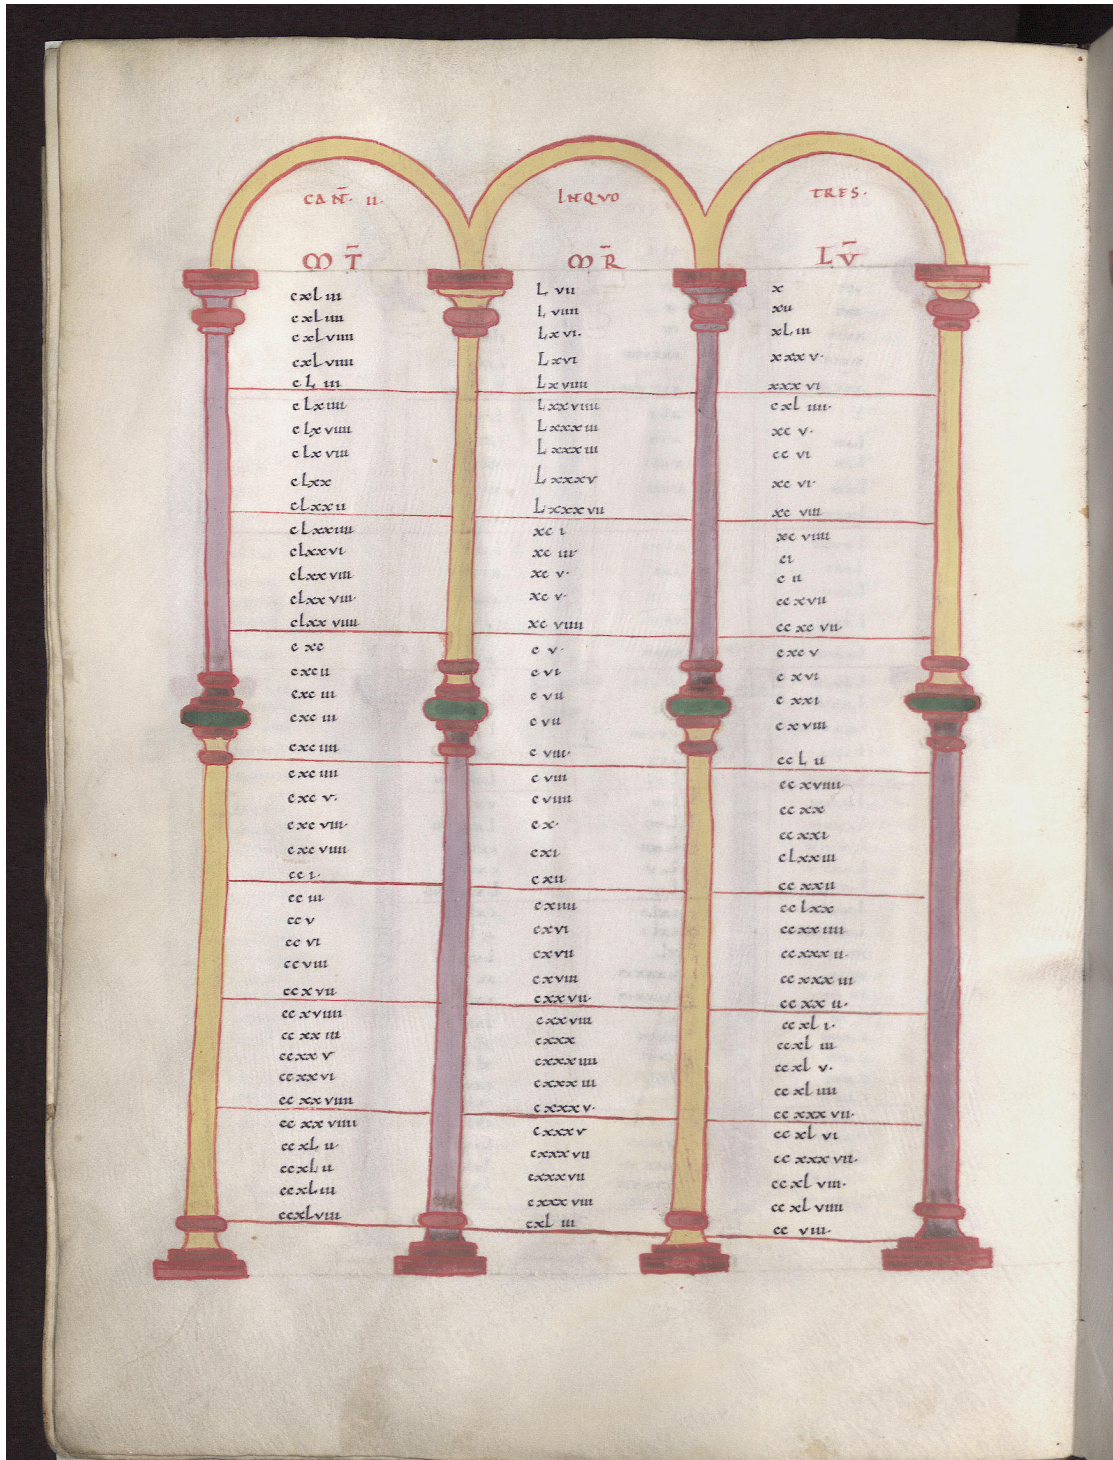 CAÑ· II· INQUO TRES·
M̄T M̄R LŪ
cxLiii Lvii x
cxLiiii Lviiii xii
cxLviiii Lxvi· xLiii
cxLviiii Lxvi xxxv·
cLiii Lxviiii xxxvi
cLxiiii Lxxviiii cxLiiii·
cLxviiii Lxxxiii xcv·
cLxviii Lxxxiii ccvi
cLxx Lxxxv xcvi·
cLxxii Lxxxvii xcviii
cLxxiiii xci xcviiii
cLxxvi xciii ci
cLxxviii xcv· cii
cLxxviii· xcv· ccxvii
cLxxviiii xcviiii ccxcvii·
cxc cv· cxcv
cxcii cvi cxvi
cxciii cvii cxxi
cxciii cvii cxviii
cxciiii cviii· ccLii
cxciiii cviii ccxviiii
cxcv· cviiii ccxx
cxcviii· cx· ccxxi
cxcviiii cxi cLxxiii
cci· cxii ccxxii
cciii cxiiii ccLxx
ccv cxvi ccxxiiii
ccvi cxvii ccxxxii·
ccviii cxviii ccxxxiii
ccxvii cxxvii· ccxxii·
ccxviiii cxxviii ccxLi·
ccxxiii cxxx ccxLiii
ccxxv cxxxiiii ccxLv·
ccxxvi cxxxiii ccxLiiii
ccxxviiii cxxxv· ccxxxvii·
ccxxviiii cxxxv ccxLvi
ccxLii· cxxxvii ccxxxvii·
ccxLii cxxxvii ccxLviii·
ccxLiii cxxxviii ccxLviiii
ccxLviii cxLiii ccviii·